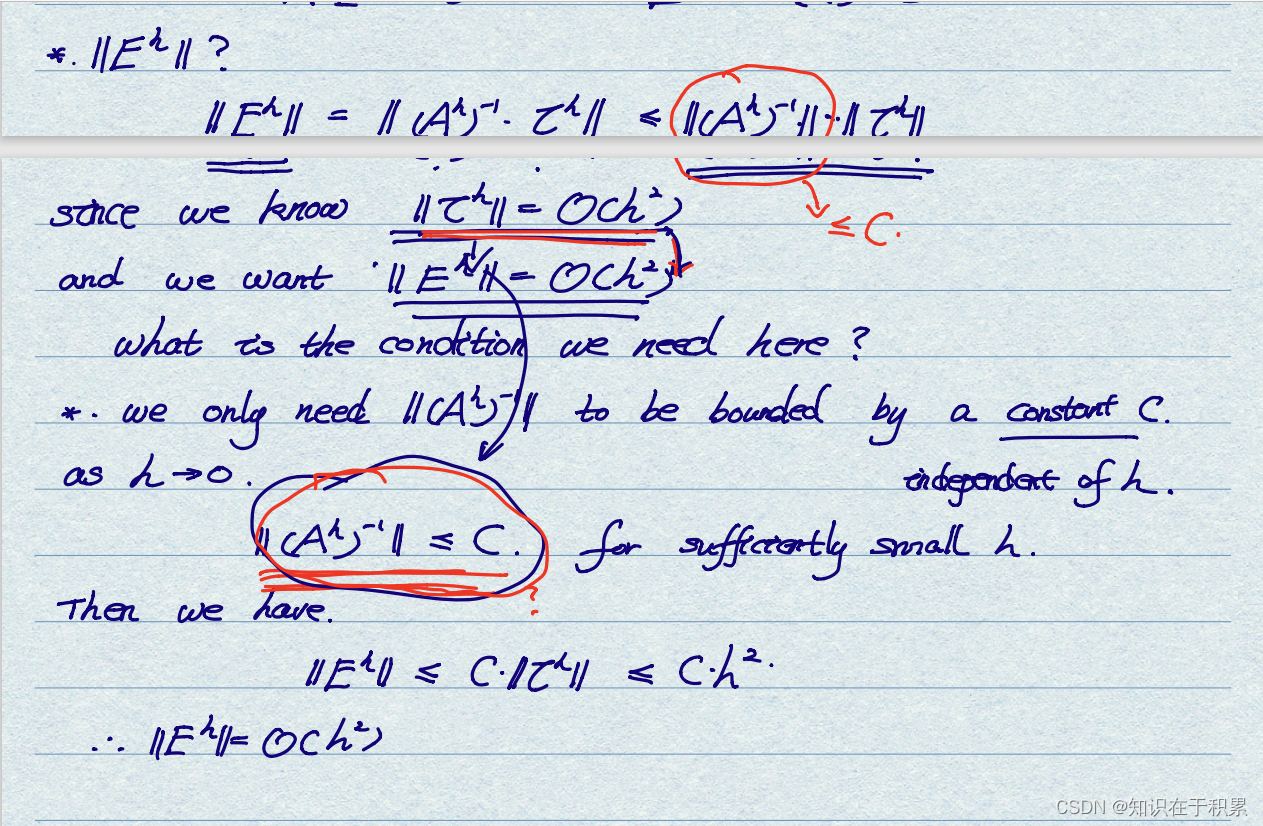 *. ‖E^h‖ ?
‖E^h‖ = ‖(A^h)^-1 · τ^h‖ ≤ ‖(A^h)^-1‖·‖τ^h‖
since we know ‖τ^h‖ = O(h^2)
≤ C.
and we want ‖E^h‖ = O(h^2)
what is the condition we need here ?
*. we only need ‖(A^h)^-1‖ to be bounded by a constant C.
as h → 0. independent of h.
‖(A^h)^-1‖ ≤ C. for sufficiently small h.
?
Then we have.
‖E^h‖ ≤ C·‖τ^h‖ ≤ C·h^2.
∴ ‖E^h‖ = O(h^2)
CSDN @知识在于积累